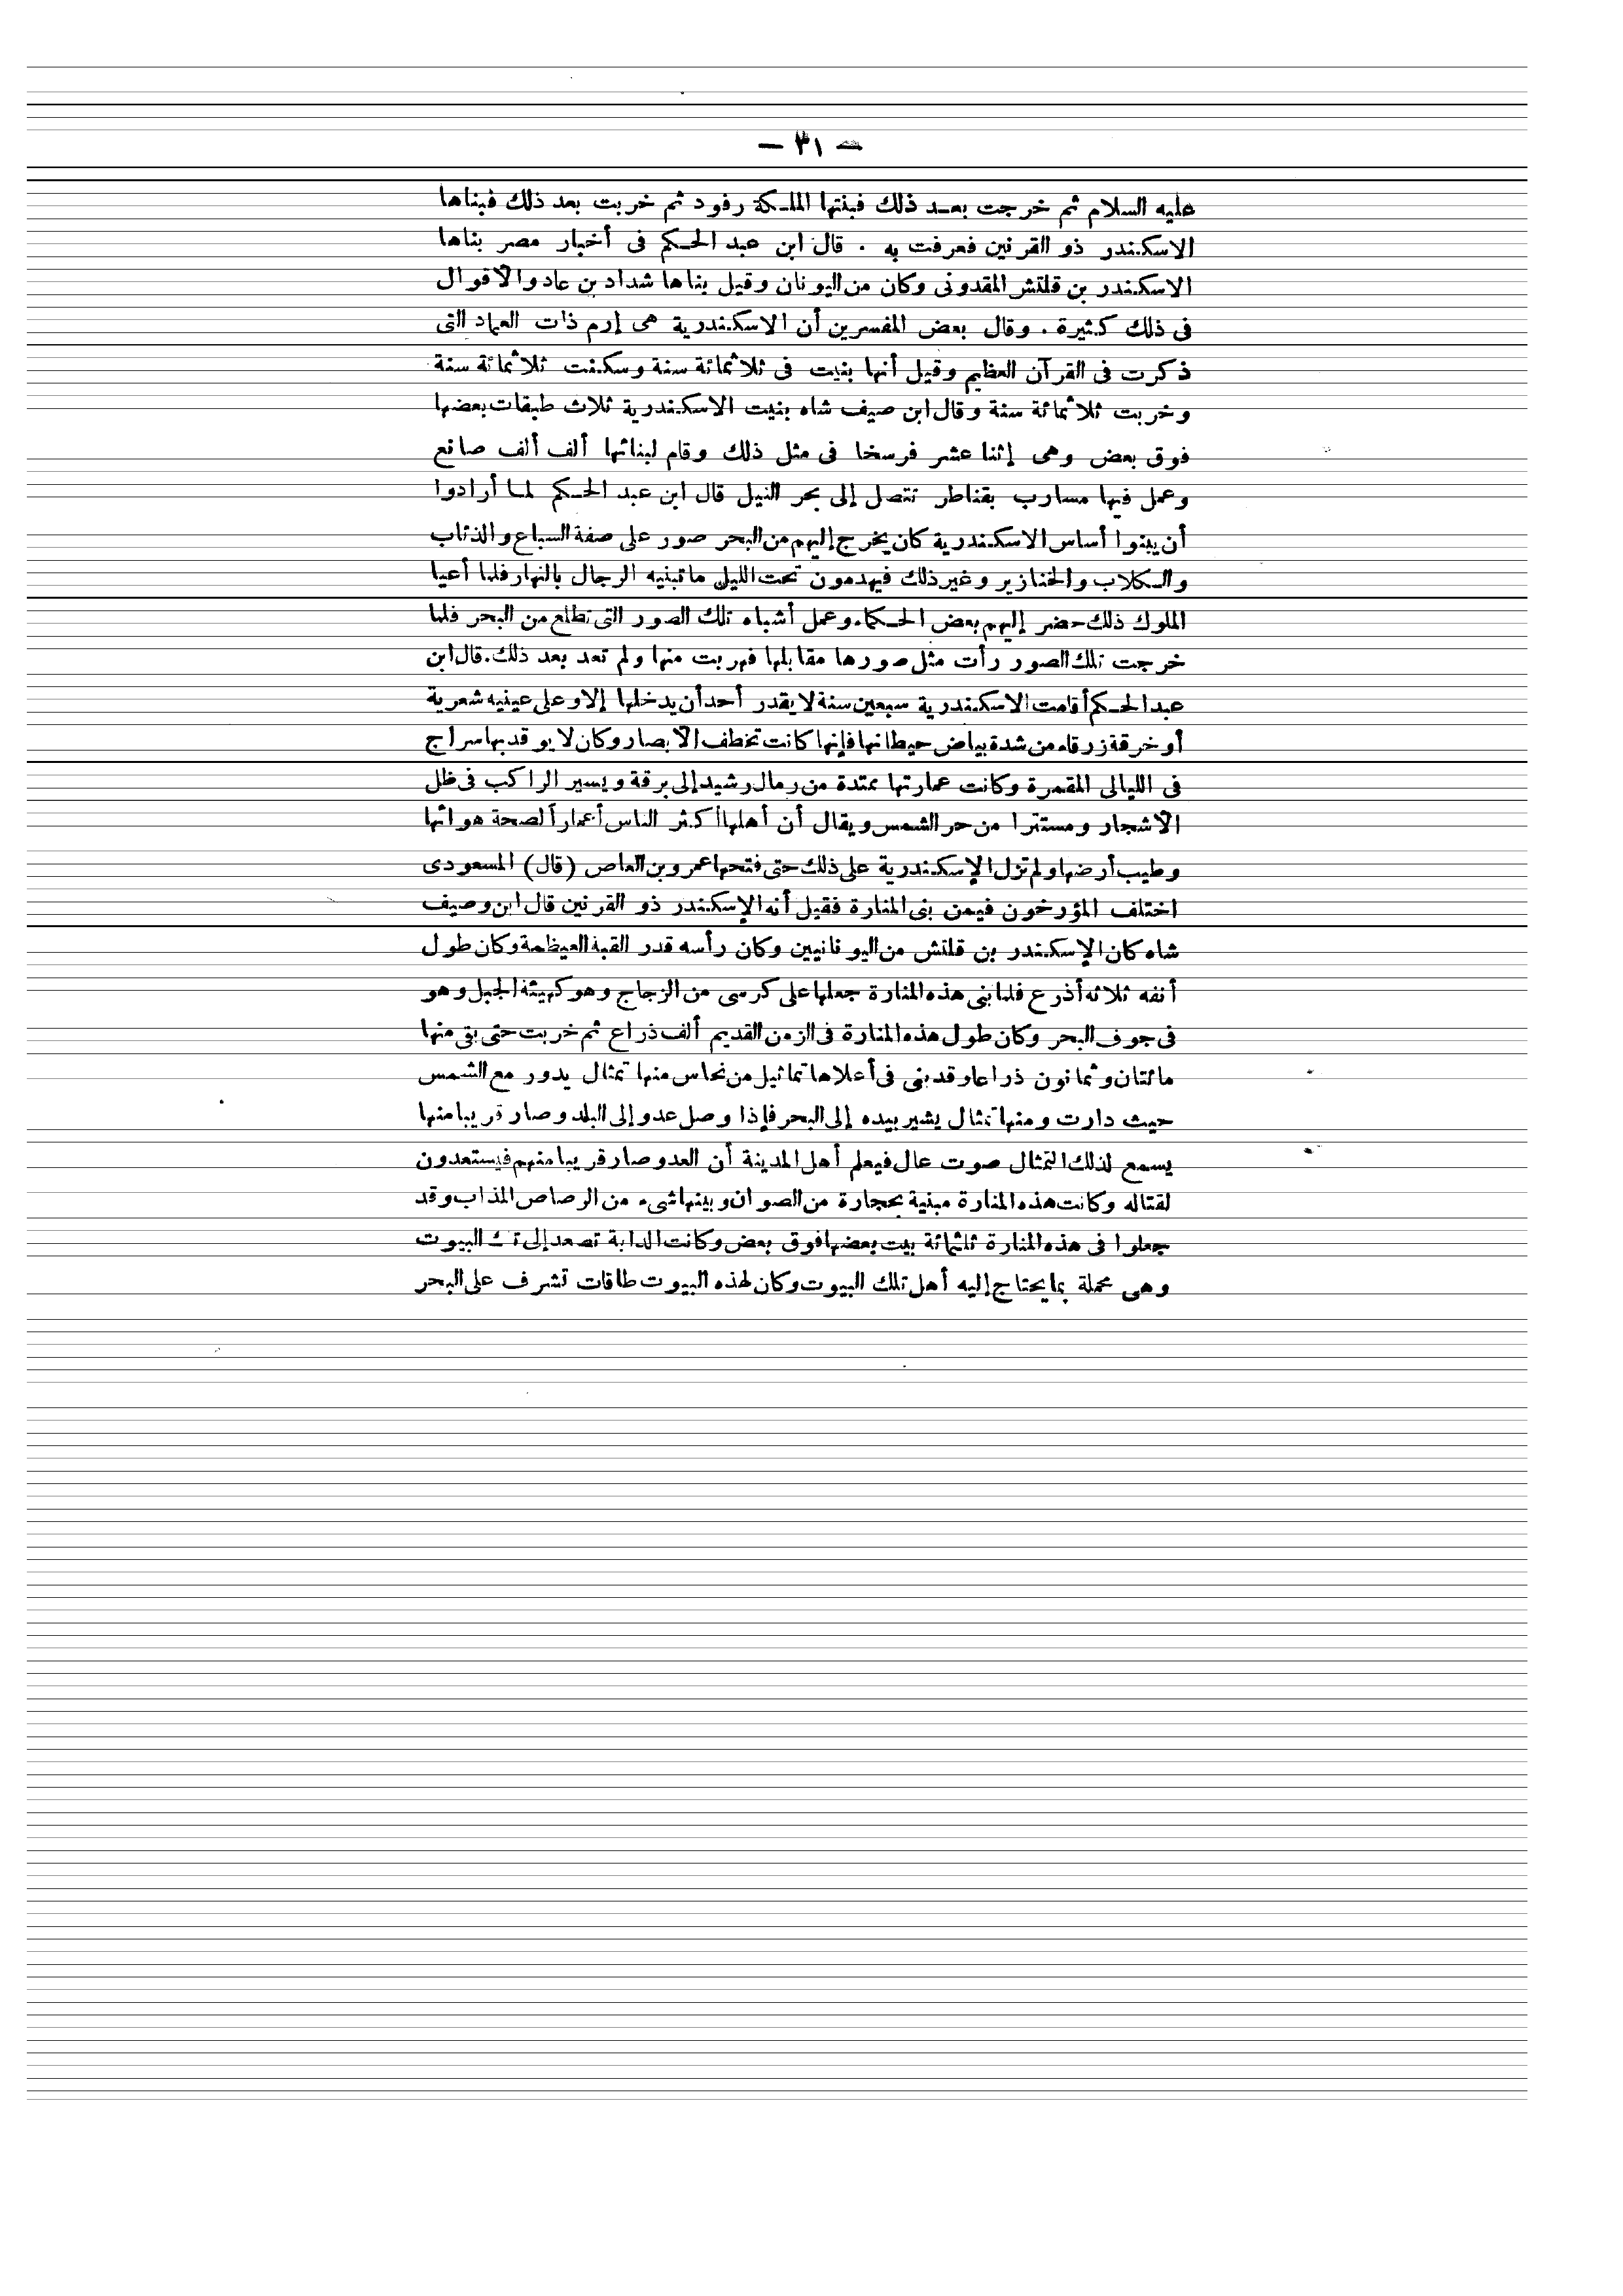 — ٣١ —
عليه السلام ثم خرجت بعد ذلك فبنتها الملكة رفود ثم خربت بعد ذلك فبناها
الاسكندر ذو القرنين فعرفت به . قال ابن عبد الحكم فى أخبار مصر بناها
الاسكندر بن قلتش المقدونى وكان من اليونان وقيل بناها شداد بن عاد والاقوال
فى ذلك كثيرة . وقال بعض المفسرين أن الاسكندرية هى إرم ذات العماد التى
ذكرت فى القرآن العظيم وقيل أنها بنيت فى ثلاثمائة سنة وسكنت ثلاثمائة سنة
وخربت ثلاثمائة سنة وقال ابن صيف شاه بنيت الاسكندرية ثلاث طبقات بعضها
فوق بعض وهى إثنا عشر فرسخا فى مثل ذلك وقام لبنائها ألف ألف صانع
وعمل فيها مسارب بقناطر تتصل إلى بحر النيل قال ابن عبد الحكم لما أرادوا
أن يبنوا أساس الاسكندرية كان يخرج إليهم من البحر صور على صفة السباع والذئاب
والكلاب والخنازير وغير ذلك فيهدمون تحت الليل ما تبنيه الرجال بالنهار فلما أعيا
الملوك ذلك حضر إليهم بعض الحكماء وعمل أشباه تلك الصور التى تطلع من البحر فلما
خرجت تلك الصور رأت مثل صورها مقابلها فهربت منها ولم تعد بعد ذلك. قال ابن
عبد الحكم أقامت الاسكندرية سبعين سنة لا يقدر أحد أن يدخلها إلا وعلى عينيه شعرية
أو خرقة زرقاء من شدة بياض حيطانها فإنها كانت تخطف الأبصار وكان لا يوقد بها سراج
فى الليالى المقمرة وكانت عمارتها ممتدة من رمال رشيد إلى برقة ويسير الراكب فى ظل
الاشجار ومستترا من حر الشمس ويقال أن أهلها أكثر الناس أعماراً لصحة هوائها
وطيب أرضها ولم تزل الإسكندرية على ذلك حتى فتحها عمرو بن العاص (قال) المسعودى
اختلف المؤرخون فيمن بنى المنارة فقيل أنه الإسكندر ذو القرنين قال ابن وصيف
شاه كان الإسكندر بن قلتش من اليونانيين وكان رأسه قدر القبة العيظمة وكان طول
أنفه ثلاثه أذرع فلما بنى هذه المنارة جعلها على كرسى من الزجاج وهو كهيئة الجبل وهو
فى جوف البحر وكان طول هذه المنارة فى الزمن القديم ألف ذراع ثم خربت حتى بقى منها
مائتان وثمانون ذراعا وقد بنى فى أعلاها تماثيل من نحاس منها تمثال يدور مع الشمس
حيث دارت ومنها تمثال يشير بيده إلى البحر فإذا وصل عدو إلى البلد وصار قريبا منها
يسمع لذلك التمثال صوت عال فيعلم أهل المدينة أن العدو صار قريبا منهم فيستعدون
لقتاله وكانت هذه المنارة مبنية بحجارة من الصوان وبينها شىء من الرصاص المذاب وقد
جعلوا فى هذه المنارة ثلثمائة بيت بعضها فوق بعض وكانت الدابة تصعد إلى تلك البيوت
وهى محملة بما يحتاج إليه أهل تلك البيوت وكان لهذه البيوت طاقات تشرف على البحر